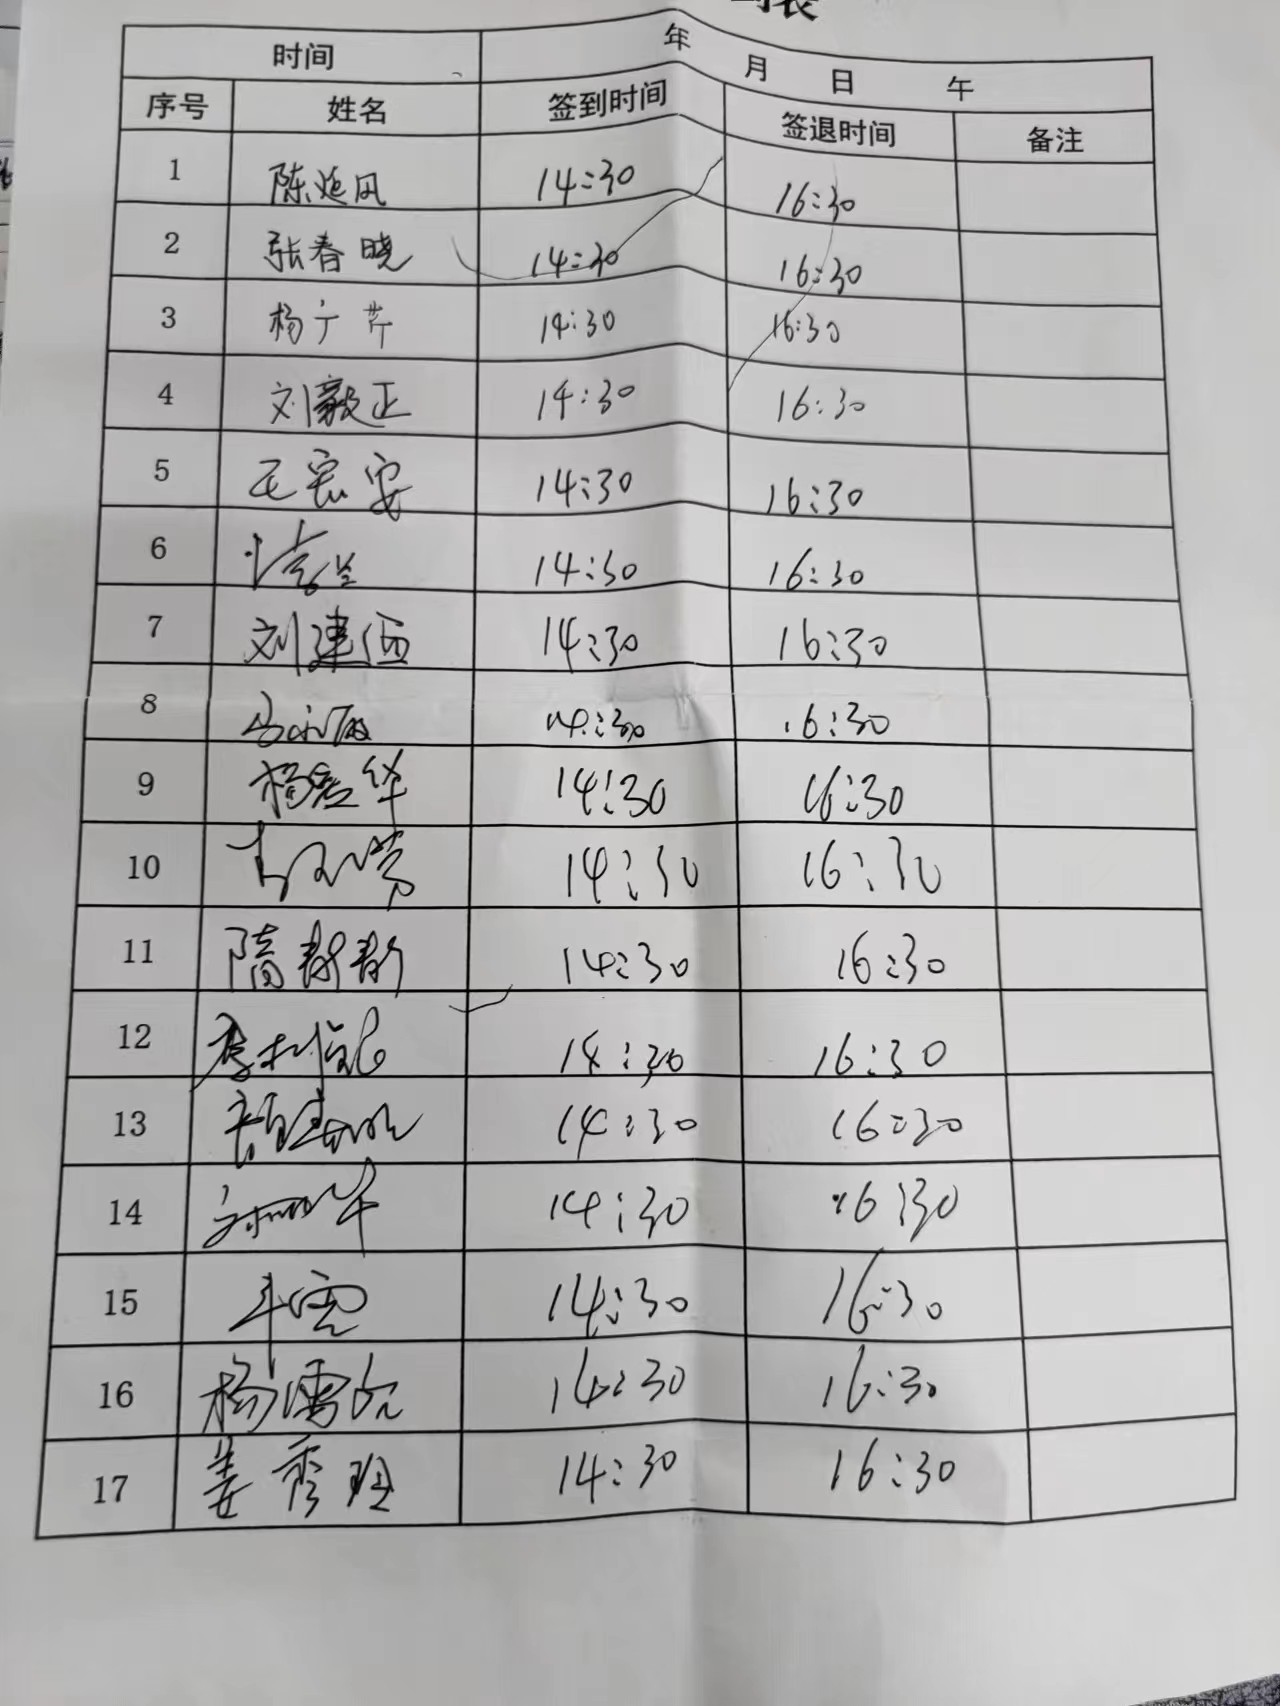 到表
时间 年 月 日 午
序号 姓名 签到时间 签退时间 备注
1 陈 凤 14:30 16:30
2 张春晓 14:30 16:30
3 杨广芹 14:30 16:30
4 刘毅正 14:30 16:30
5 王宏安 14:30 16:30
6 14:30 16:30
7 刘建伍 14:30 16:30
8 14:30 16:30
9 杨宏华 14:30 16:30
10 14:30 16:30
11 隋 14:30 16:30
12 14:30 16:30
13 14:30 16:30
14 14:30 16:30
15 14:30 16:30
16 杨 14:30 16:30
17 姜秀 14:30 16:30